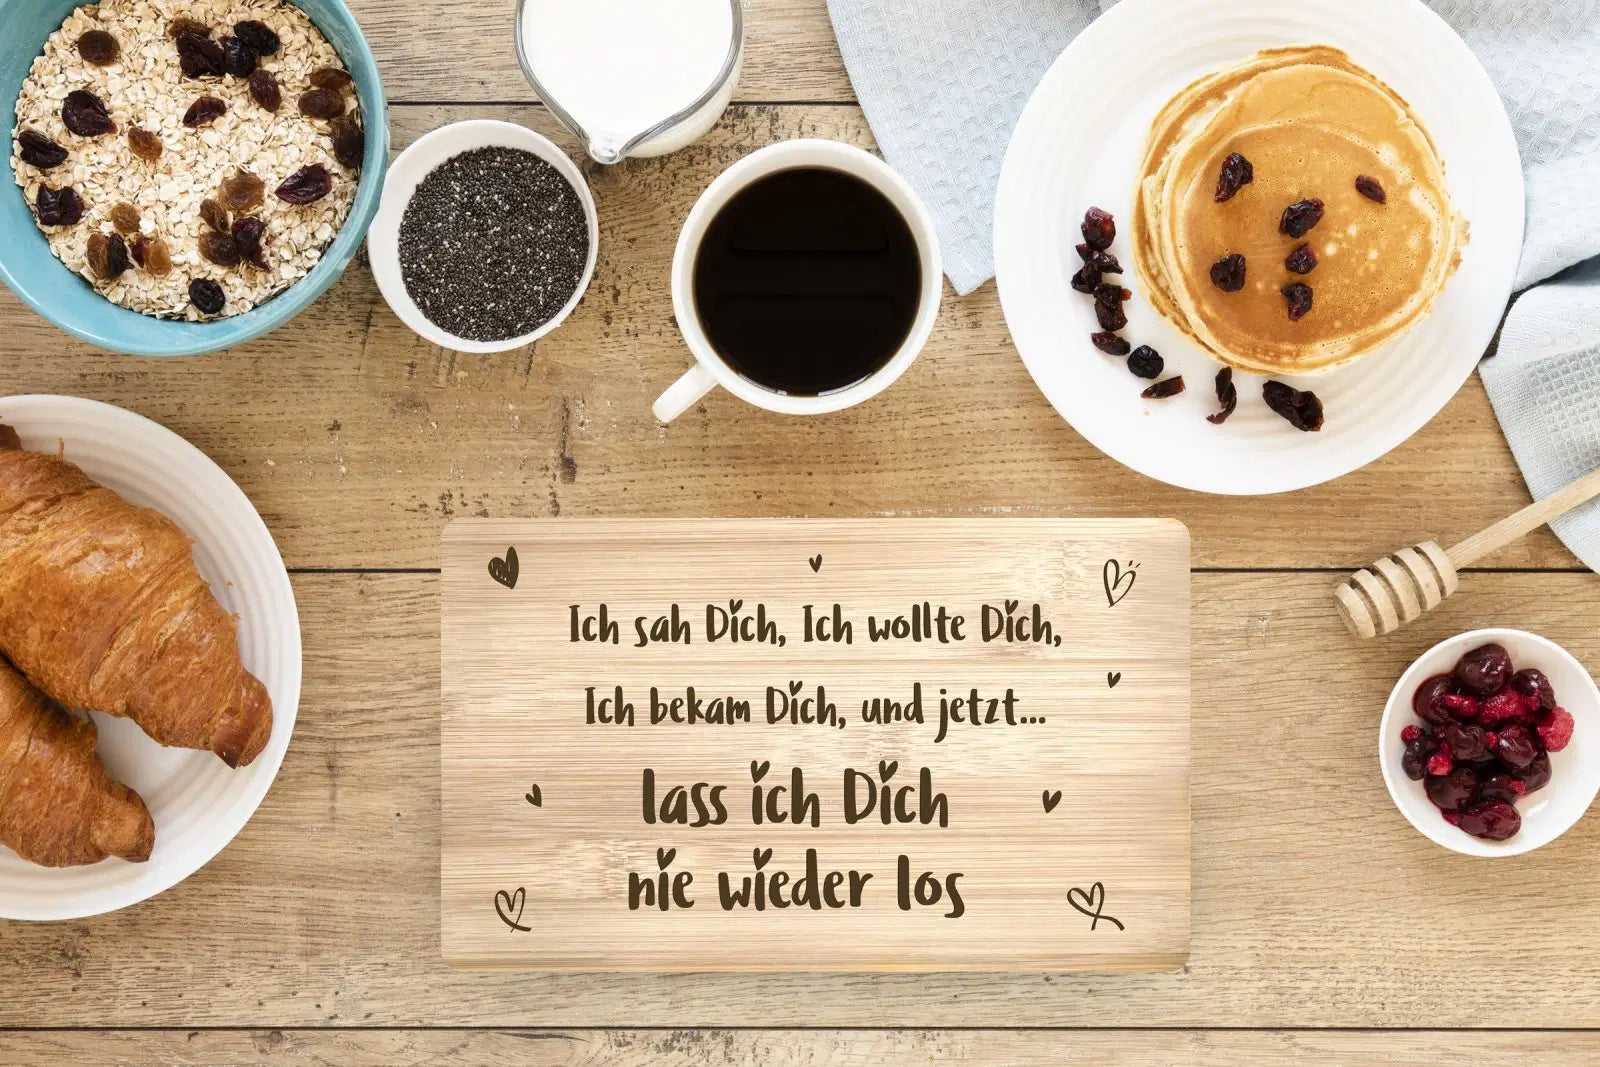 Ich sah Dich, Ich wollte Dich,
Ich bekam Dich, und jetzt...
lass ich Dich
nie wieder los